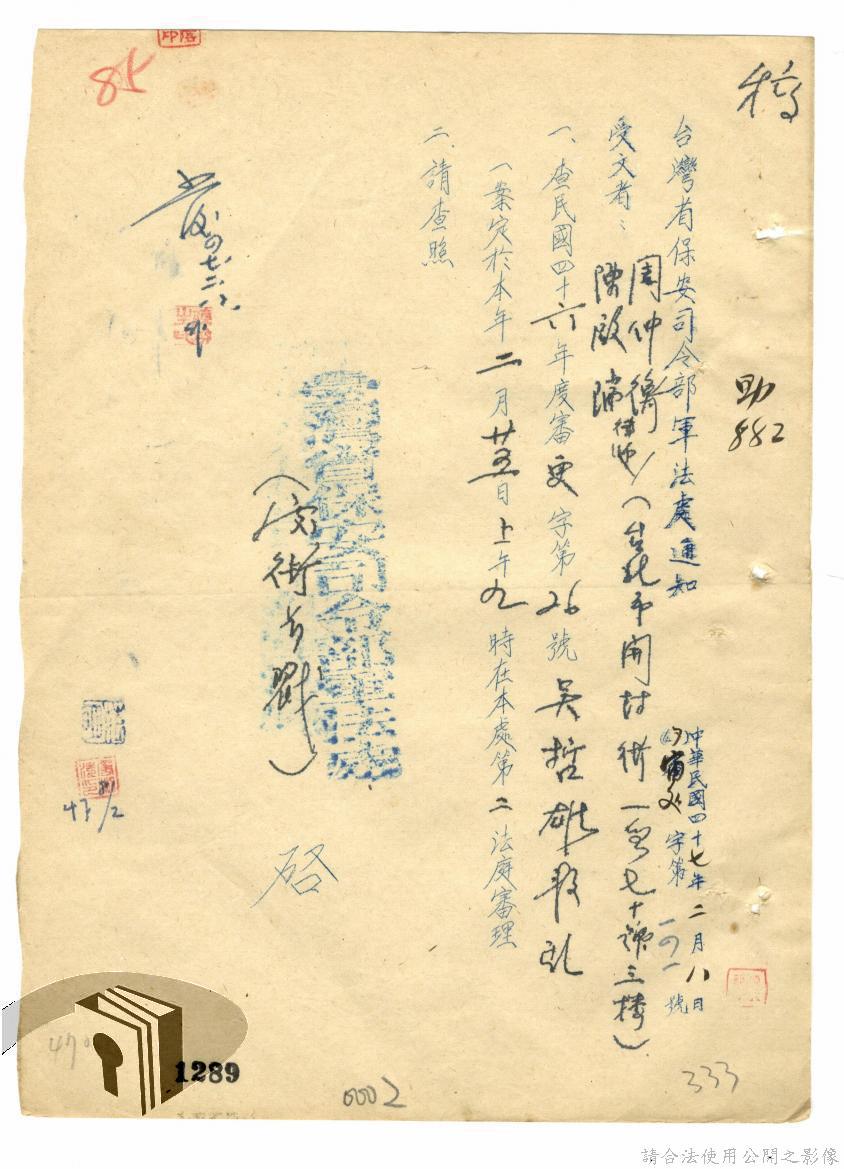 稿
助
882
台灣省保安司令部軍法處通知
中華民國四十七年二月八日
字第一四一號
受文者：
周仲衡
陳啟瑞律師（台北市開封街一段七十號三樓）
一、查民國四十六年度審更字第26號吳哲雄叛亂
一案定於本年二月廿五日上午九時在本處第二法庭審理
二、請查照
臺灣省保安司令部軍法處
（處銜長戳）
啓
85
47
1289
0002
333
請合法使用公開之影像